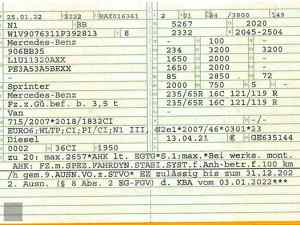 25.01.22 2222 RAX016361 2 01 84 /3800 149
N1 BB 5267 2020
W1V9076311P392813 8 2332 2045-2504
Mercedes-Benz - 100 -
906BB35 234 3200 3200
L1U11320AXX 234 3200 3200
PE3A53A5BEXX 85 2850 72
- 2000 750 5 -
Sprinter 235/65R 16C 121/119 R
Mercedes-Benz 235/65R 16C 121/119 R
Fz.z.Gü.bef. b. 3,5 t -
Van - -/-
715/2007*2018/1832CI
EURO6;WLTP;CI;PI/CI; N1 III, e1*2007/46*0301*23
Diesel 13.04.21 GE635144
0002 36CI 1950
zu 20: max.2657*AHK lt. EGTG*S.1;max.*Bei werks. mont.
AHK: FZ.m.SPEZ.FAHRDYN.STABI.SYST.f.Anh-betr.f.100 km
/h gem.9.AUSN.VO.z.STVO* EZ zulässig bis zum 31.12.202
2. Ausn. (§ 8 Abs. 2 EG-FGV) d. KBA vom 03.01.2022***